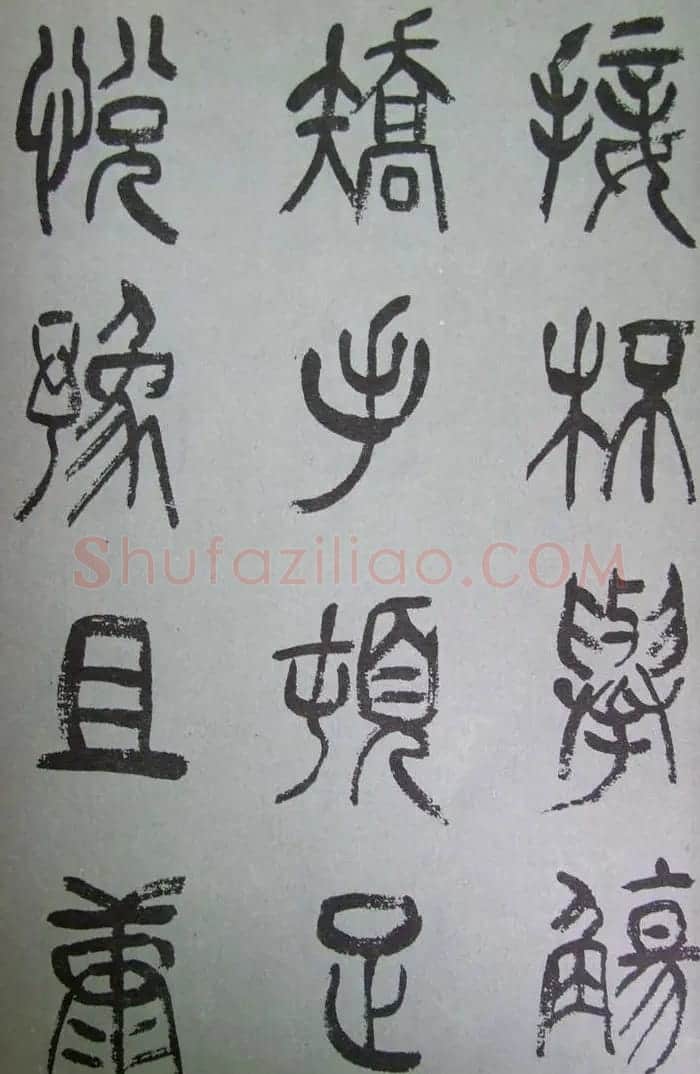 接杯舉觴
矯手頓足
悅豫且康
Shufaziliao.COM